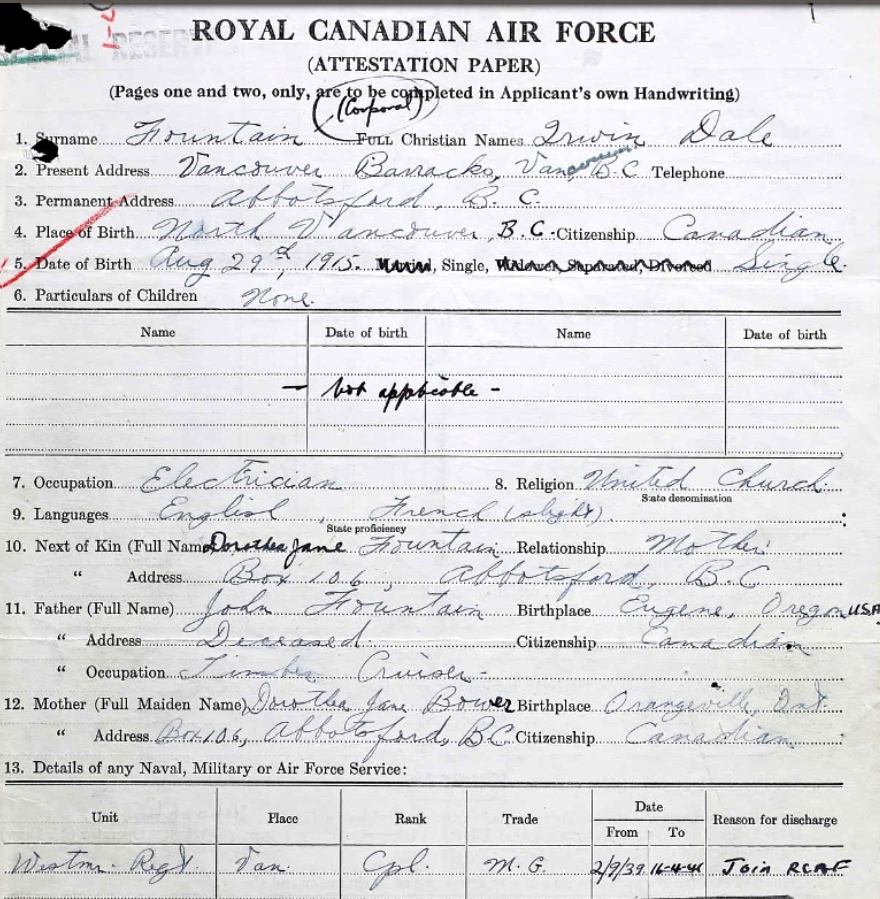 SPECIAL RESERVE
ROYAL CANADIAN AIR FORCE
(ATTESTATION PAPER)
(Pages one and two, only, are to be completed in Applicant's own Handwriting)
(Corporal)
1. Surname Fountain FULL Christian Names Irwin Dale
2. Present Address Vancouver Barracks, Vancouver B.C Telephone
3. Permanent Address Abbotsford, B. C.
4. Place of Birth North Vancouver, B.C. Citizenship Canadian
5. Date of Birth Aug 29th, 1915. Married, Single, Widower, Separated, Divorced Single.
6. Particulars of Children None.
Name Date of birth Name Date of birth
- Not applicable -
7. Occupation Electrician 8. Religion United Church.
State denomination
9. Languages English, French (slight).
State proficiency
10. Next of Kin (Full Name) Dorothea Jane Fountain Relationship Mother
" Address Box 106, Abbotsford, B.C
11. Father (Full Name) John Fountain Birthplace Eugene, Oregon USA
" Address Deceased. Citizenship Canadian
" Occupation Timber Cruiser -
12. Mother (Full Maiden Name) Dorothea Jane Bower Birthplace Orangeville, Ont.
" Address Box 106, Abbotsford, BC Citizenship Canadian
13. Details of any Naval, Military or Air Force Service:
Unit Place Rank Trade Date Reason for discharge
From To
Westmr. Regt. Van. Cpl. M.G. 2/9/39 16-4-41 Join RCAF